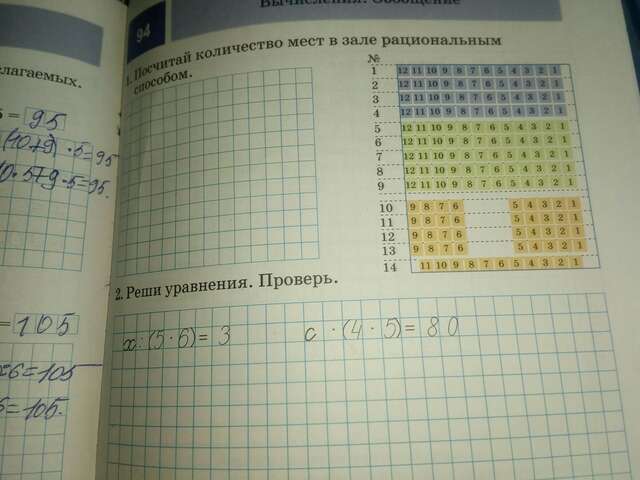 Вычисления. Обобщение
94
1. Посчитай количество мест в зале рациональным
способом.
лагаемых.
= 95
(10+9) · 5 = 95
0 · 5 + 9 · 5 = 95.
= 105
= 105
= 105.
№
1 12 11 10 9 8 7 6 5 4 3 2 1
2 12 11 10 9 8 7 6 5 4 3 2 1
3 12 11 10 9 8 7 6 5 4 3 2 1
4 12 11 10 9 8 7 6 5 4 3 2 1
5 12 11 10 9 8 7 6 5 4 3 2 1
6 12 11 10 9 8 7 6 5 4 3 2 1
7 12 11 10 9 8 7 6 5 4 3 2 1
8 12 11 10 9 8 7 6 5 4 3 2 1
9 12 11 10 9 8 7 6 5 4 3 2 1
10 9 8 7 6 5 4 3 2 1
11 9 8 7 6 5 4 3 2 1
12 9 8 7 6 5 4 3 2 1
13 9 8 7 6 5 4 3 2 1
14 11 10 9 8 7 6 5 4 3 2 1
2. Реши уравнения. Проверь.
x : (5 · 6) = 3 c · (4 · 5) = 80